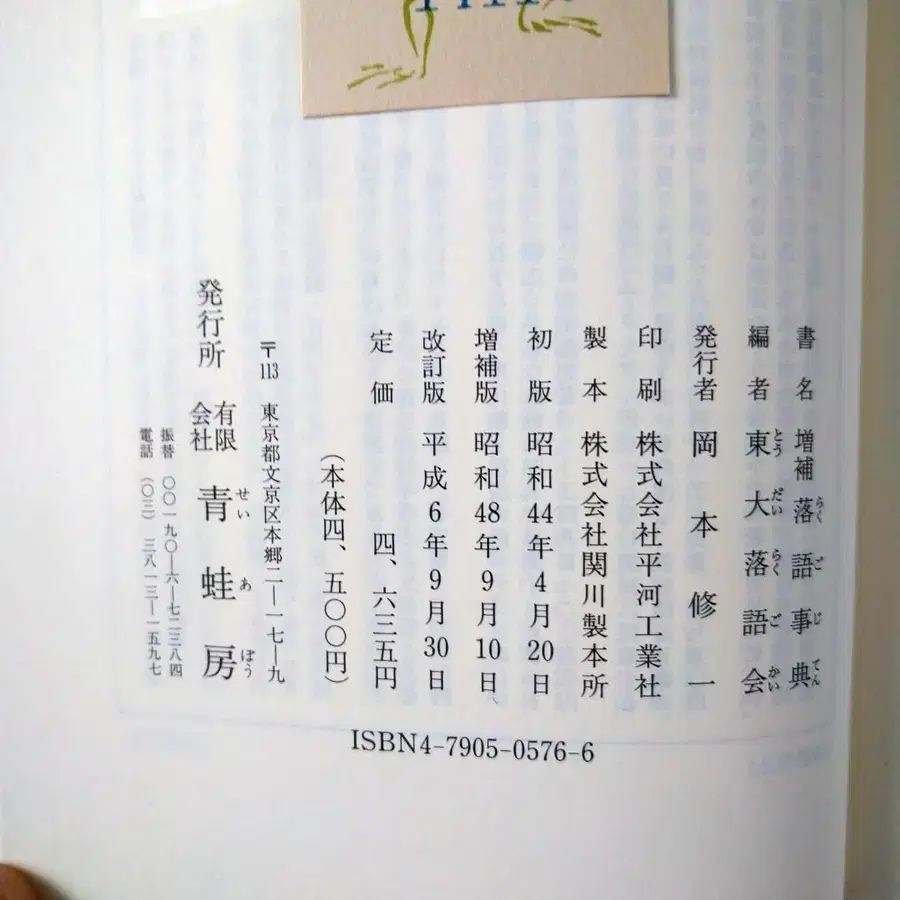 書名 増補 落語事典
らくごじてん
編者 東大落語会
とうだいらくごかい
発行者 岡本修一
印刷 株式会社平河工業社
製本 株式会社関川製本所
初版 昭和44年4月20日
増補版 昭和48年9月10日
改訂版 平成6年9月30日
定価 四、六三五円
(本体四、五〇〇円)
〒113 東京都文京区本郷二―一七―九
発行所 有限会社 青蛙房
せいあぼう
振替 〇〇一九〇―六―七二三八四
電話 (〇三)三八一三―一五九七
ISBN4-7905-0576-6